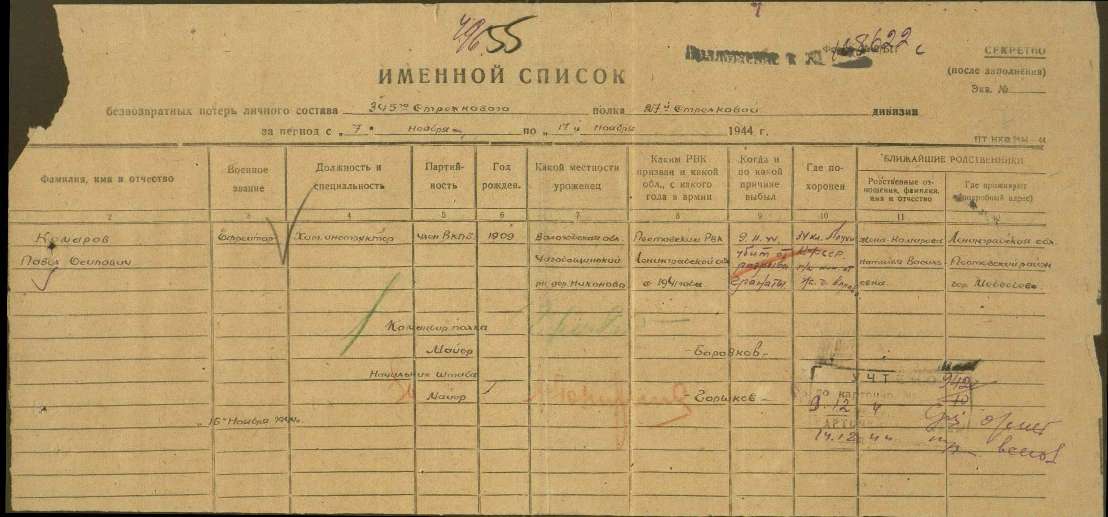 496 55
Приложение к 48622 с
СЕКРЕТНО
(после заполнения)
Экз. №
ИМЕННОЙ СПИСОК
безвозвратных потерь личного состава 345го Стрелкового полка 27й Стрелковой дивизии
за период с „7“ ноября по „17“ ноября 1944 г.
Фамилия, имя и отчество
Военное звание
Должность и специальность
Партий-
ность
Год рожден.
Какой местности уроженец
Каким РВК призван и какой обл., с какого года в армии
Когда и по какой причине выбыл
Где по-
хоронен
БЛИЖАЙШИЕ РОДСТВЕННИКИ
Родственные от-
ношения, фамилия, имя и отчество
Где проживают (подробный адрес)
2 3 4 5 6 7 8 9 10 11
Комаров Ефрейтор Хим. инструктор член ВКПб. 1909 Вологодская обл. РВК 9.11.44 Жена Комарова Ленинградская обл.
Павел Осипович Чагодощинский Ленинградской обл убит от Наталия Василь район
рн дер. Никоново с 1941 года разрыва гранаты евна дер.
Командир полка
Майор - Боровков -
Начальник штаба
Майор - Горшков -
„16“ Ноября 1944г.
УЧТЕНО
942
9.12.44
14.12.44